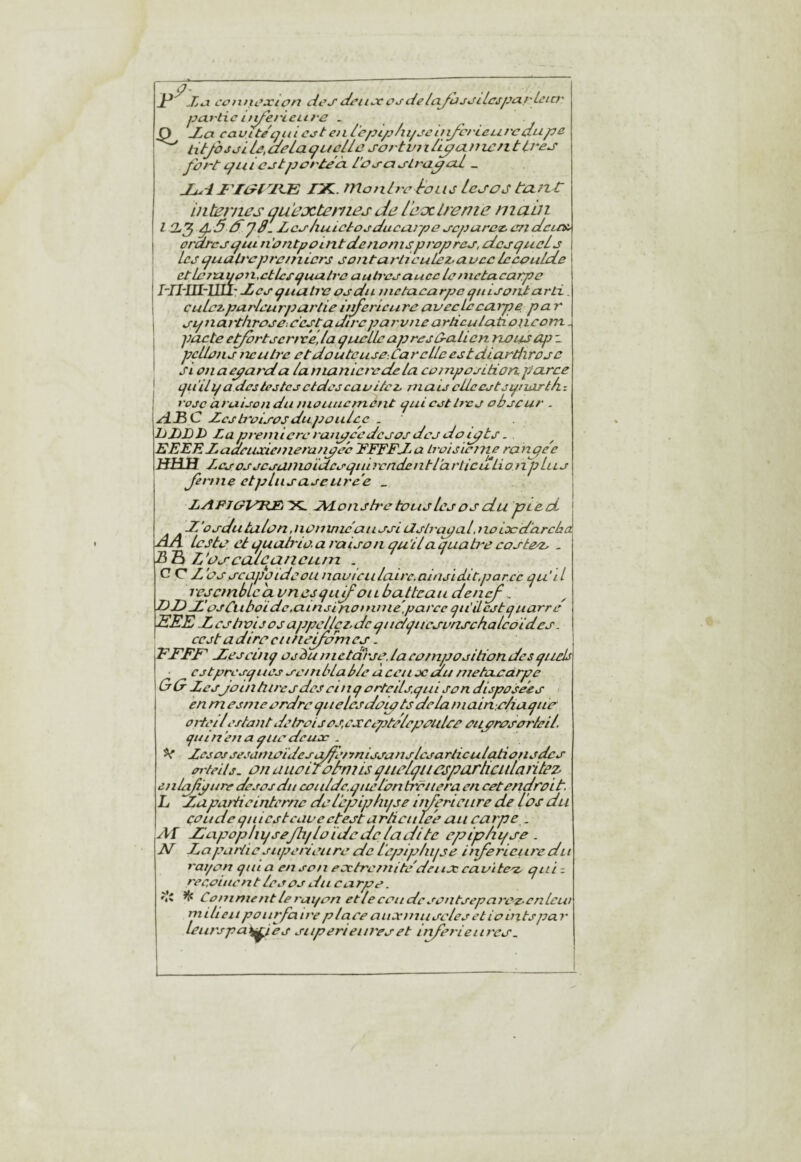 P La connexion des deux os de la fossiles par leur
partie inferieure .
Q La cavité qui est en l'epiphyse inferieure du pe
titfossile, de laquelle sort vn ligament tres
fort qui est porté a l'os astragal .
LA FIGVRE IX. Monstre tous les os tant
internes qu'externes de l'extreme main
1 2 3 4 5 6 7 8. Les huict os du carpe separez en deux
ordres qui n'ont point de noms propres, desquels
les quatre premiers sont articulez, avec le coulde
et le rayon, et les quatre autres avec le metacarpe
I-II-III-IIII- Les quatre os du metacarpe qui sont arti.
culez par leur partie inferieure avec le carpe par
synarthrose, c'est a dire par vne articulation com .
pacte et fort serrée, la quelle apres Galien nous ap -
pellons neutre et douteuse. Car elle est diarthrose
si on a egard a la maniere de la composition, parce
qu'il y a des testes et des cavitez, mais elle est synarth:
rose a raison du mouuement qui est tres obscur .
ABC Les trois os du poulce .
DDDD La premiere rangée des os des doigts .
EEEE La deuxieme rangée FFFF La troisieme rangée
HHH Les os sesamoides qui rendent l'articulation plus
ferme et plus aseurée .
LA FIGVRE X. Monstre tous les os du pied
L'os du talon, nommé aussi Astragal, noix d'arcba
AA leste et quatrio, a raison qu'il a quatre costez, .
B B L'os calcaneum .
C C L'os scapoide ou naviculaire, ainsi dit, parce qu'il
resemble a vn esquif ou batteau de nef .
DD L'os Cuboide, ainsi nommé, parce qu'il est quarré
EEE Les trois os appellez, de quelques vns chalcoides.
cest a dire cuneifomes .
FFFF Les cinq os du metatarse, la composition des quels
est presques semblable a ceux du metacarpe
G G Les jointures des cinq orteils, qui son disposées
en mesme ordre que les doigts de la main, chaque
orteil estant de trois os, excepté le poulce ou gros orteil.
qui n'en a que deux .
* Les os sesamoides affermissans les articulations des
orteils. On auoit obmis quelques particularitez
en la figure des os du coulde, que l'on treuuera en cet endroit.
L La partie interne de l'epiphyse inferieure de l'os du
coude qui est cave et est articulée au carpe .
M L'apophyse styloide de la dite epiphyse .
N La partie superieure de l'epiphyse inferieure du
rayon qui a en son extremité deux cavitez qui :
reçoiuent les os du carpe .
* * Comment le rayon et le coude sont separez en leur
milieu pour faire place aux muscles et ioints par
leurs parties superieures et inferieures.